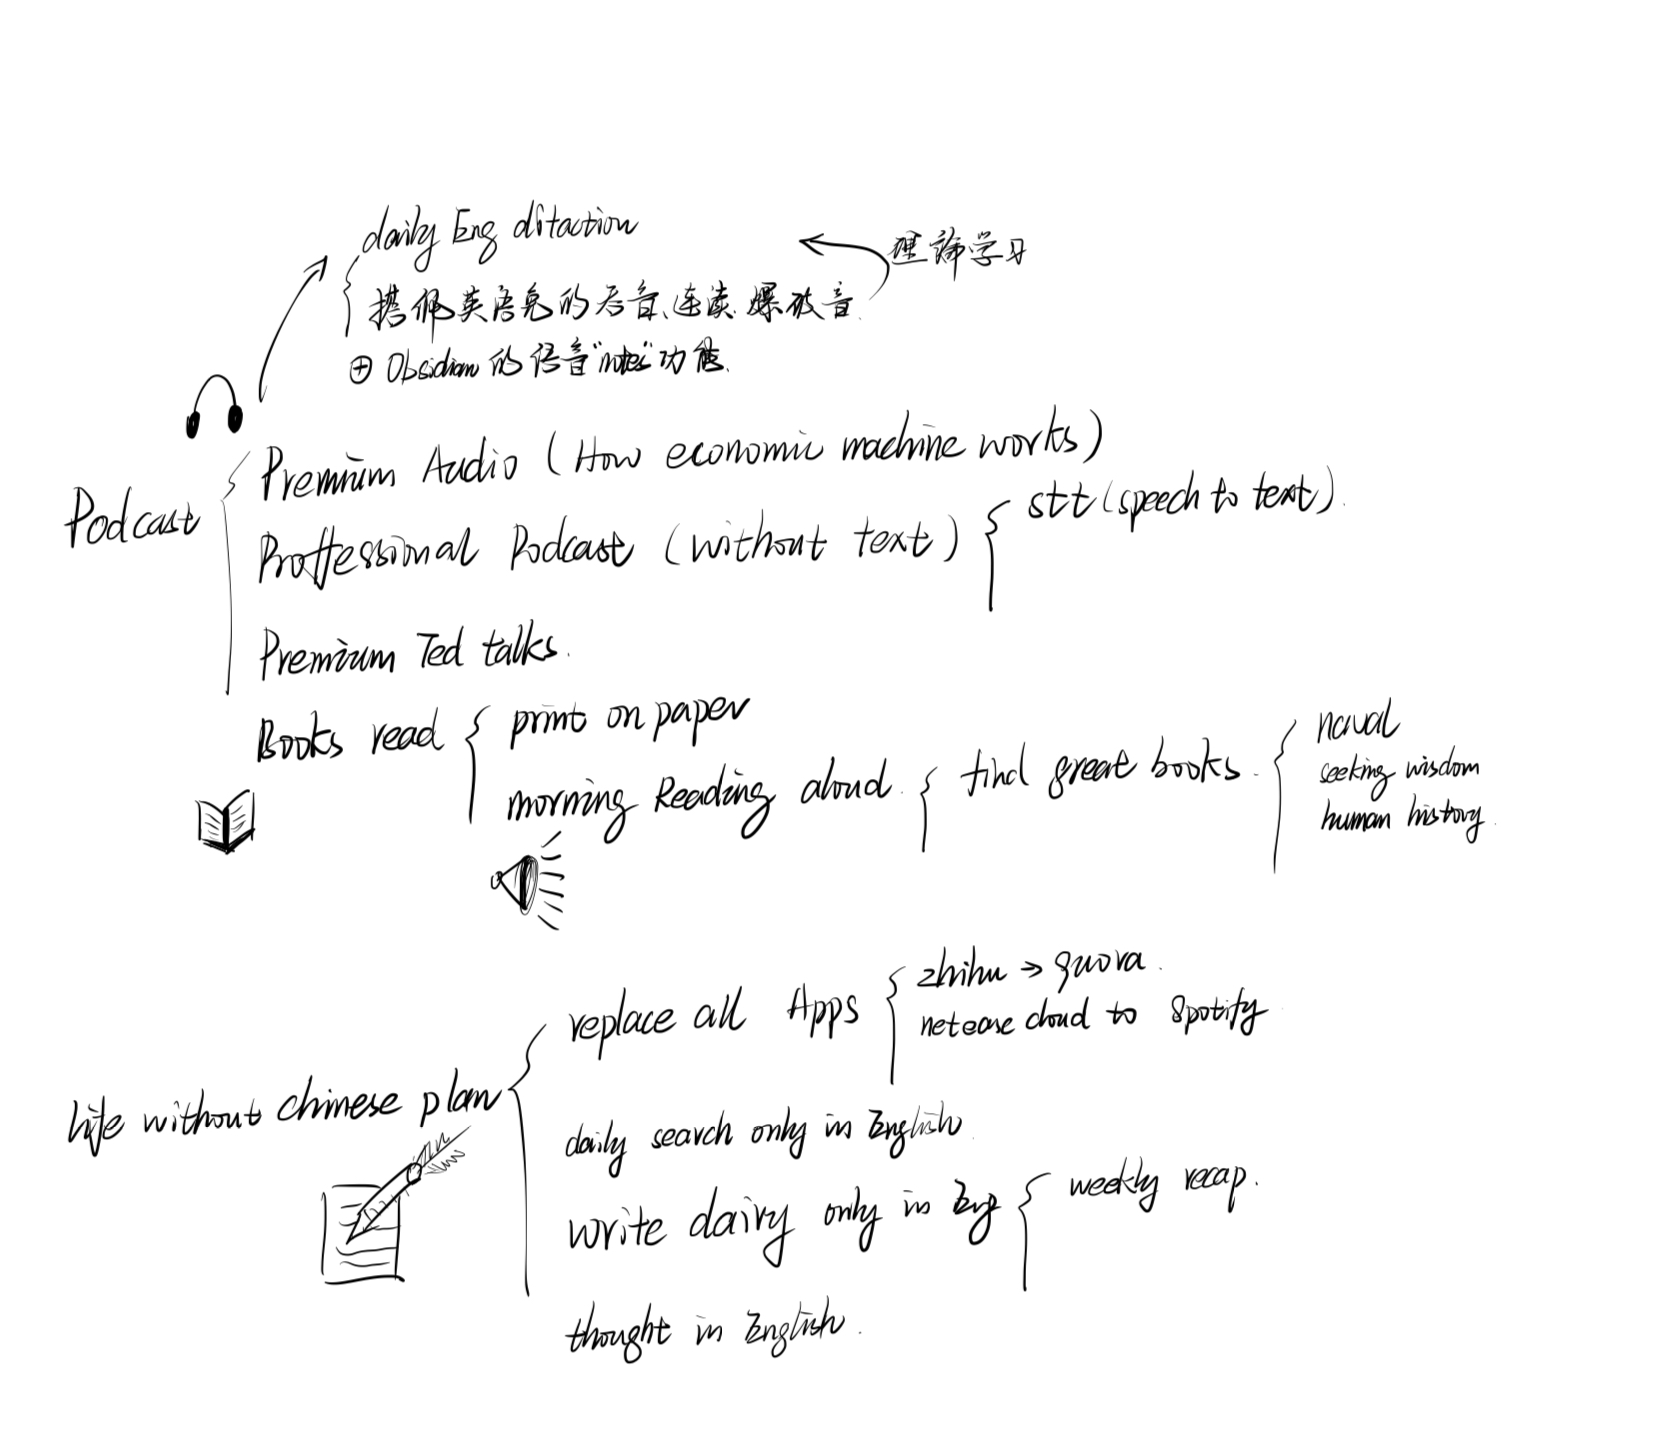 daily Eng ditaction
理论学习
搭佩英语兔的后音、连读、爆破音.
⊕ Obsidian 的语音"notes"功能.
Podcast
Premium Audio (How economic machine works)
Proffessional Podcast (without text)
stt (speech to text).
Premium Ted talks.
Books read
print on paper
morning Reading aloud.
find great books.
naval
seeking wisdom
human history.
life without chinese plan
replace all Apps
zhihu → quora.
netease cloud to Spotify
daily search only in English
write dairy only in Eng
weekly recap.
thought in English.